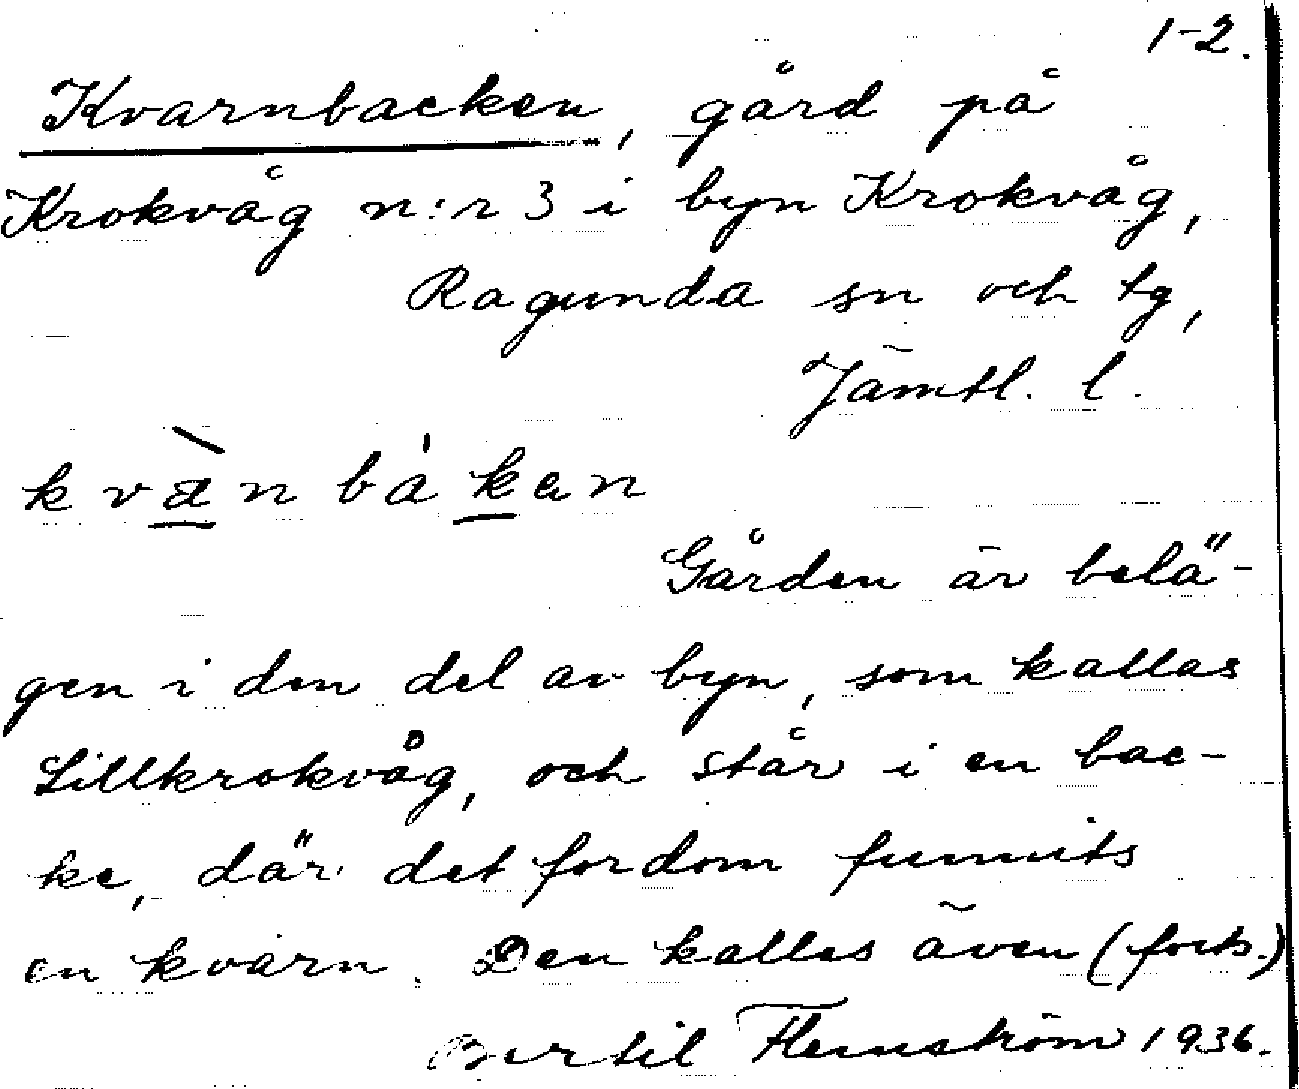 1-2.
Kvarnbacken, gård på
Krokvåg n:r 3 i byn Krokvåg,
Ragunda sn och tg,
Jämtl. l.
kvànbákan
Gården är belä-
gen i den del av byn, som kallas
Lillkrokvåg, och står i en bac-
ke, där det fordom funnits
en kvarn. Den kallas även (forts.)
Bertil Flemström 1936.